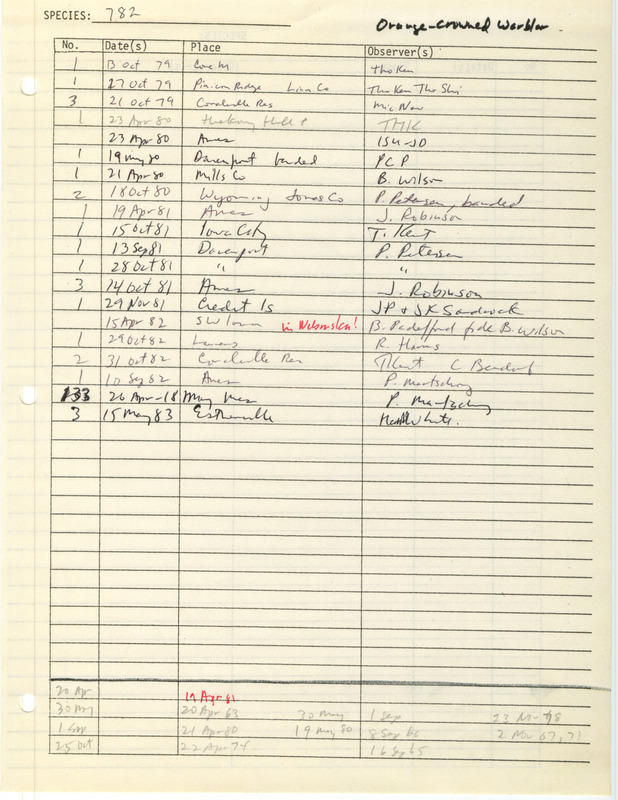 SPECIES: 782
Orange-Crowned Warbler
No. Date(s) Place Observer(s)
1 13 Oct 79 Cone M Tho Ken
1 27 Oct 79 Pinicon Ridge Linn Co Tho Ken Tho Shi
3 21 Oct 79 Coralville Res Mic New
1 23 Apr 80 Hickory Hill P THK
23 Apr 80 Ames ISU-JD
1 19 May 80 Davenport banded PCP
1 21 Apr 80 Mills Co B. Wilson
2 18 Oct 80 Wyoming Jones Co P. Petersen, banded
1 19 Apr 81 Ames J. Robinson
1 15 Oct 81 Iowa City T. Kent
1 13 Sep 81 Davenport P. Petersen
1 28 Oct 81 " "
3 14 Oct 81 Ames J. Robinson
1 29 Nov 81 Credit Is JP & JK Sandrock
15 Apr 82 SW Iowa in Nebraska! B. Padelford fide B. Wilson
1 29 Oct 82 R. Harms
2 31 Oct 82 Coralville Res TKent C Bendorf
1 10 Sep 82 Ames P. Martsching
133 26 Apr-18 May Ames P. Martsching
3 15 May 83 Estherville
20 Ap 19 Apr 81
30 May 20 Apr 63 30 May 1 Sep 23 Nov 78
1 Sep 21 Apr 80 19 May 80 8 Sep 65 2 Nov 67, 71
25 Oct 22 Apr 74 16 Sep 65